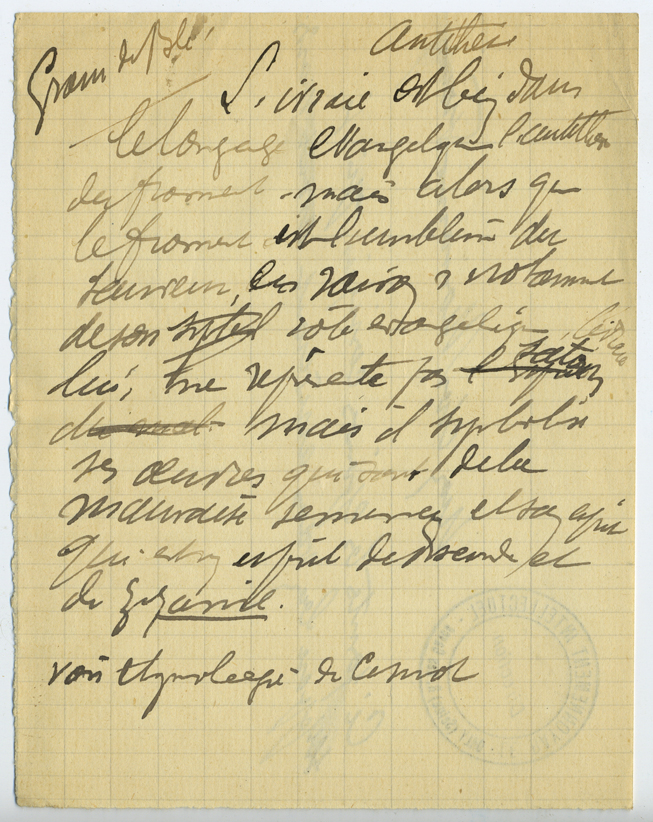 Grain de Blé
Antithèse
L'ivraie est bien dans
le langage évangélique l'antithèse
du froment. mais alors que
le froment est l'emblème du
Sauveur, en raison notamment
de son rôle évangélique, l'ivraie
lui, ne représente pas Satan
mais il symbolise
ses œuvres qui sont de la
mauvaise semence et son esprit
qui est un esprit de discorde et
de zizanie.
voir étymologie de ce mot